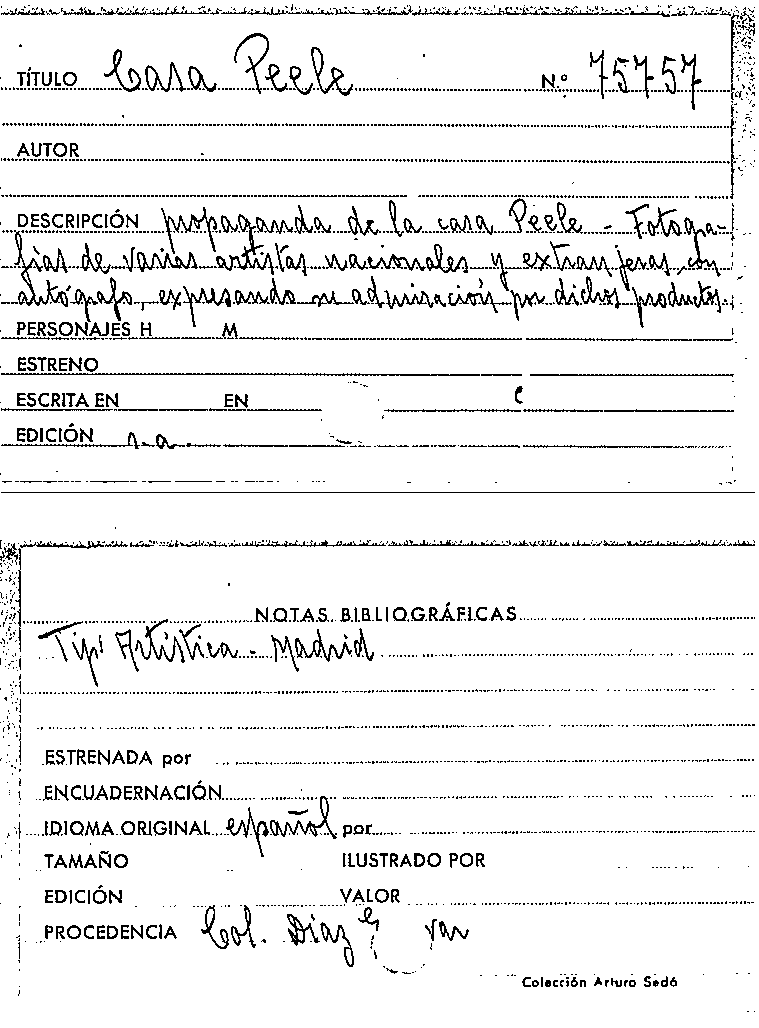 TÍTULO Casa Peele N.º 75757
AUTOR
DESCRIPCIÓN propaganda de la casa Peele - Fotogra-
fías de varias artistas nacionales y extranjeras, con
autógrafo, expresando su admiración por dichos productos.
PERSONAJES H M
ESTRENO
ESCRITA EN EN
EDICIÓN s.a.
NOTAS BIBLIOGRÁFICAS
Tip. Artística - Madrid
ESTRENADA por
ENCUADERNACIÓN
IDIOMA ORIGINAL español por
TAMAÑO ILUSTRADO POR
EDICIÓN VALOR
PROCEDENCIA Col. Díaz
Colección Arturo Sedó